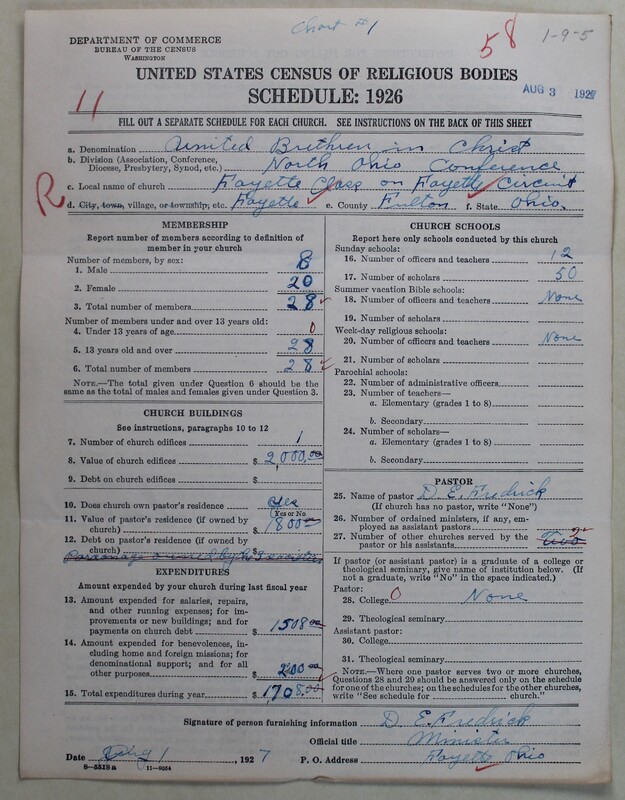 Chart #1
58
1-9-5
DEPARTMENT OF COMMERCE
BUREAU OF THE CENSUS
WASHINGTON
UNITED STATES CENSUS OF RELIGIOUS BODIES
SCHEDULE: 1926
AUG 3 1927
11
FILL OUT A SEPARATE SCHEDULE FOR EACH CHURCH. SEE INSTRUCTIONS ON THE BACK OF THIS SHEET
a. Denomination United Brethren in Christ
b. Division (Association, Conference, Diocese, Presbytery, Synod, etc.) North Ohio Conference
c. Local name of church Fayette Class on Fayette Circuit
R
d. City, town, village, or township, etc. Fayette e. County Fulton f. State Ohio
MEMBERSHIP
Report number of members according to definition of
member in your church
Number of members, by sex:
1. Male 8
2. Female 20
3. Total number of members 28
Number of members under and over 13 years old:
4. Under 13 years of age 0
5. 13 years old and over 28
6. Total number of members 28
NOTE.—The total given under Question 6 should be
same as the total of males and females given under Question 3.
CHURCH BUILDINGS
See instructions, paragraphs 10 to 12
7. Number of church edifices 1
8. Value of church edifices $ 2,000.00
9. Debt on church edifices $
10. Does church own pastor's residence Yes
(Yes or No)
11. Value of pastor's residence (if owned by
church) $ 1800
12. Debt on pastor's residence (if owned by
church) $
Parsonage owned by
EXPENDITURES
Amount expended by your church during last fiscal year
13. Amount expended for salaries, repairs,
and other running expenses; for im-
provements or new buildings; and for
payments on church debt $ 1508.00
14. Amount expended for benevolences, in-
cluding home and foreign missions; for
denominational support; and for all
other purposes $ 200.00
15. Total expenditures during year $ 1708.00
CHURCH SCHOOLS
Report here only schools conducted by this church
Sunday schools:
16. Number of officers and teachers 12
17. Number of scholars 50
Summer vacation Bible schools:
18. Number of officers and teachers None
19. Number of scholars
Week-day religious schools:
20. Number of officers and teachers None
21. Number of scholars
Parochial schools:
22. Number of administrative officers
23. Number of teachers—
a. Elementary (grades 1 to 8)
b. Secondary
24. Number of scholars—
a. Elementary (grades 1 to 8)
b. Secondary
PASTOR
25. Name of pastor D. E. Fredrick
(If church has no pastor, write "None")
26. Number of ordained ministers, if any, em-
ployed as assistant pastors
27. Number of other churches served by the
pastor or his assistants Two 2
If pastor (or assistant pastor) is a graduate of a college or
theological seminary, give name of institution below. (If
not a graduate, write "No" in the space indicated.)
Pastor:
28. College 0 None
29. Theological seminary
Assistant pastor:
30. College
31. Theological seminary
NOTE.—Where one pastor serves two or more churches,
Questions 28 and 29 should be answered only on the schedule
for one of the churches; on the schedules for the other churches,
write "See schedule for church."
Signature of person furnishing information D. E. Fredrick
Official title Minister
Date Aug 1, 1927 P. O. Address Fayette Ohio
8—5518a 11—9054